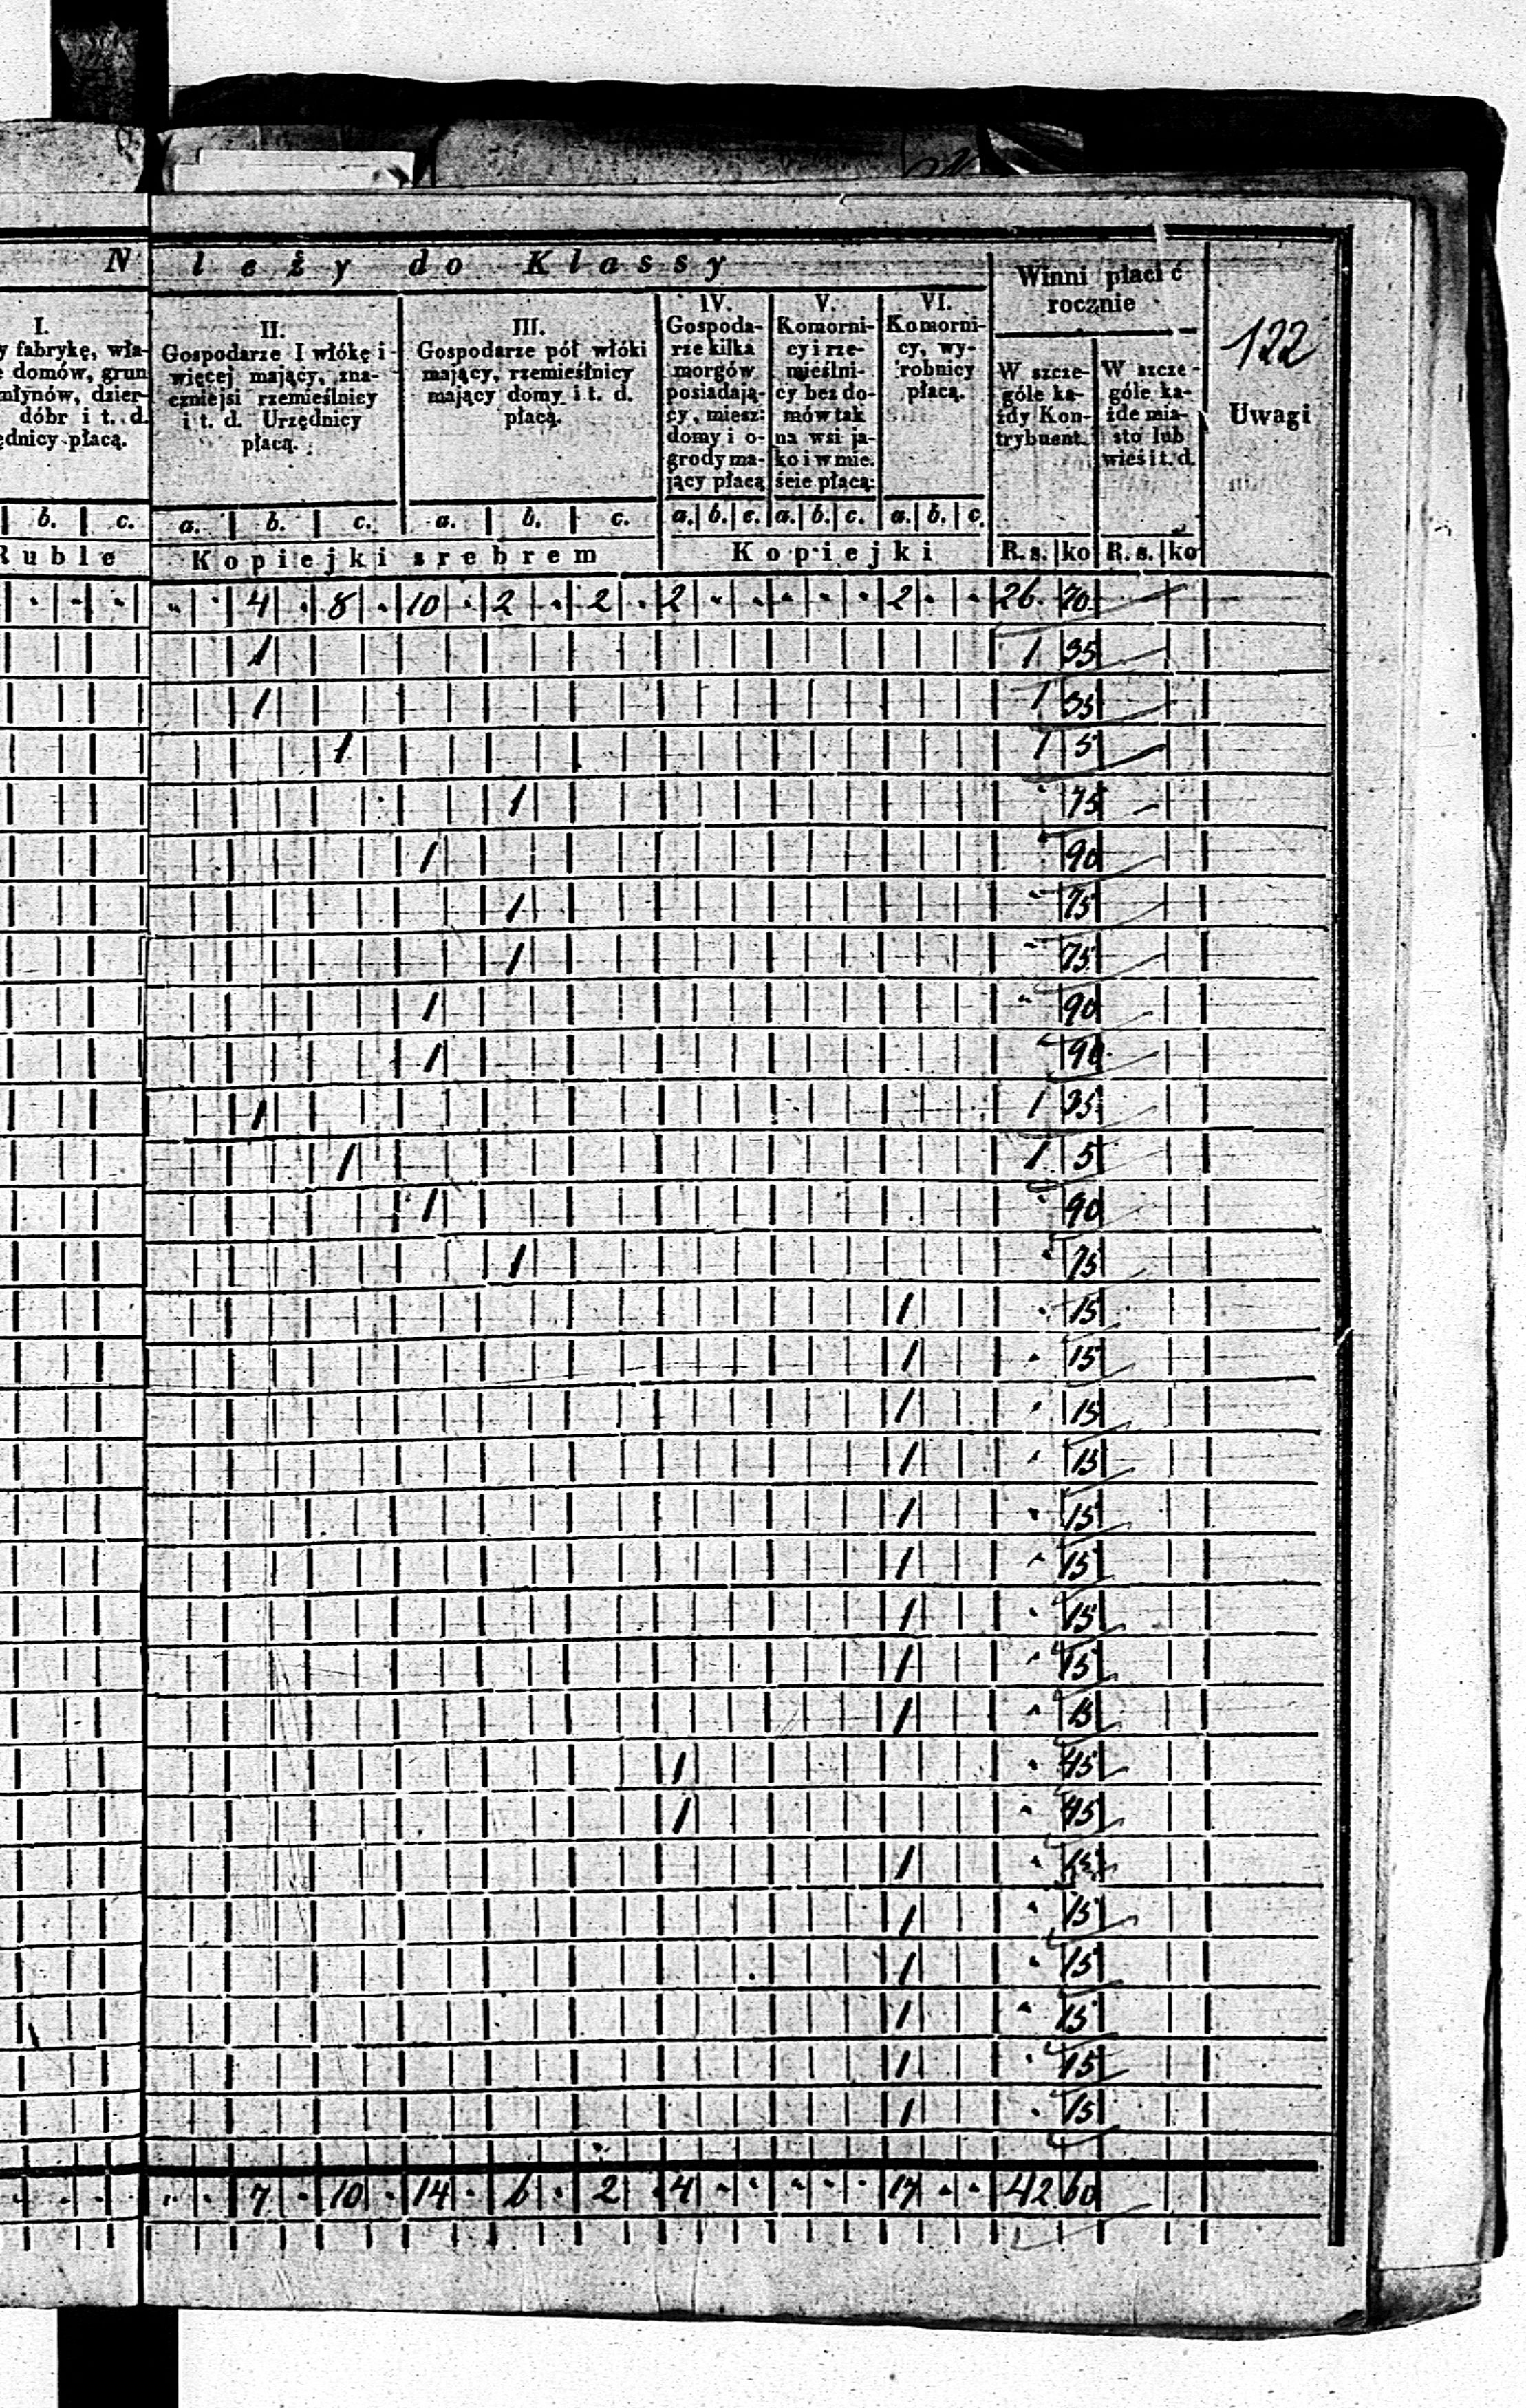 N leży do Klassy
Winni płacić rocznie
122
Uwagi
I.
y fabrykę, wła-
domów, grun
młynów, dzier-
dóbr i t. d.
ędnicy płacą.
II.
Gospodarze I włókę i
więcej mający, zna-
czniejsi rzemieślnicy
i t. d. Urzędnicy
płacą.
III.
Gospodarze pół włóki
mający, rzemieślnicy
mający domy i t. d.
płacą.
IV.
Gospoda-
rze kilka
morgów
posiadają-
cy, miesz:
domy i o-
grody ma-
jący płacą
V.
Komorni-
cy i rze-
mieślni-
cy bez do-
mów tak
na wsi ja-
ko i w mie.
ście płacą:
VI.
Komorni-
cy, wy-
robnicy
płacą.
W szcze-
góle ka-
żdy Kon-
trybuent.
W szcze-
góle ka-
żde mia-
sto lub
wieś i t. d.
b. c. a. b. c. a. b. c. a. b. c. a. b. c. a. b. c.
Ruble Kopiejki srebrem Kopiejki R. s. ko R. s. ko
4 8 10 2 2 2 2 26 70
1 1 35
1 1 35
1 1 5
1 75
1 90
1 75
1 75
1 90
1 90
1 1 35
1 1 5
1 90
1 75
1 15
1 15
1 15
1 15
1 15
1 15
1 15
1 15
1 15
1 45
1 45
1 15
1 15
1 15
1 15
1 15
1 15
7 10 14 6 2 4 17 42 60